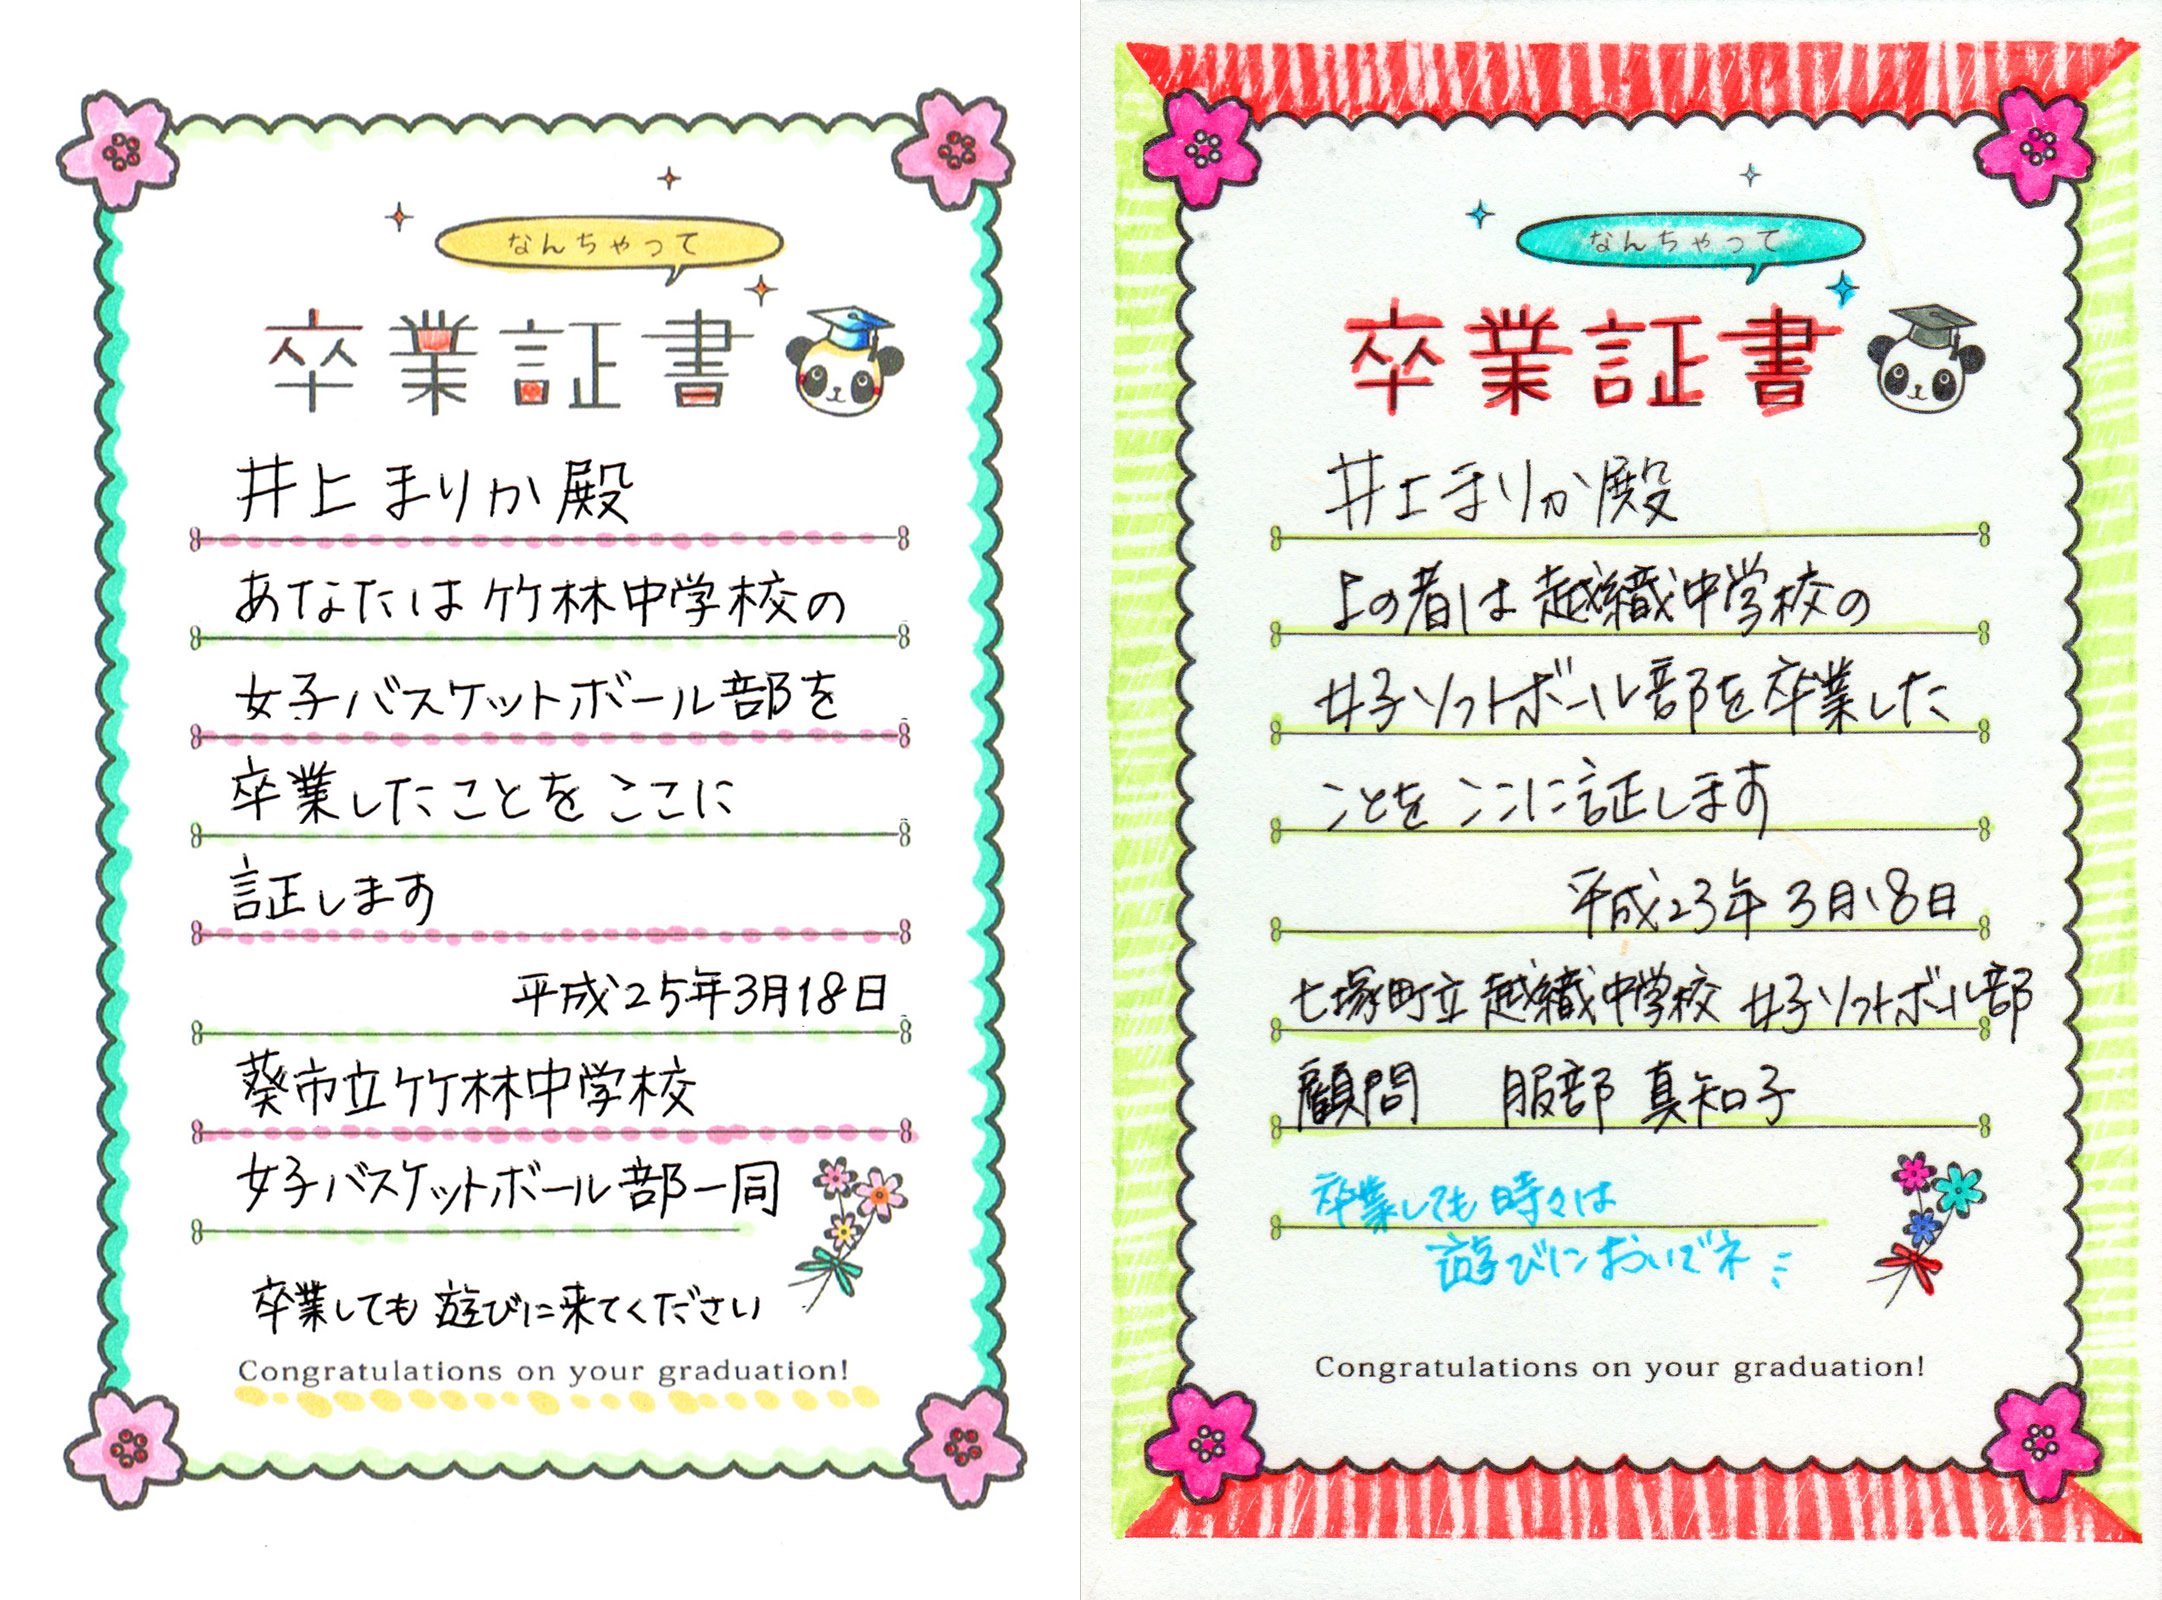 なんちゃって
卒業証書
井上まりか殿
あなたは竹林中学校の
女子バスケットボール部を
卒業したことをここに
証します
平成25年3月18日
葵市立竹林中学校
女子バスケットボール部一同
卒業しても遊びに来てください
Congratulations on your graduation!
なんちゃって
卒業証書
井上まりか殿
上の者は越織中学校の
女子ソフトボール部を卒業した
ことをここに証します
平成23年3月18日
七塚町立越織中学校 女子ソフトボール部
顧問 服部 真知子
卒業しても時々は
遊びにおいでネ
Congratulations on your graduation!